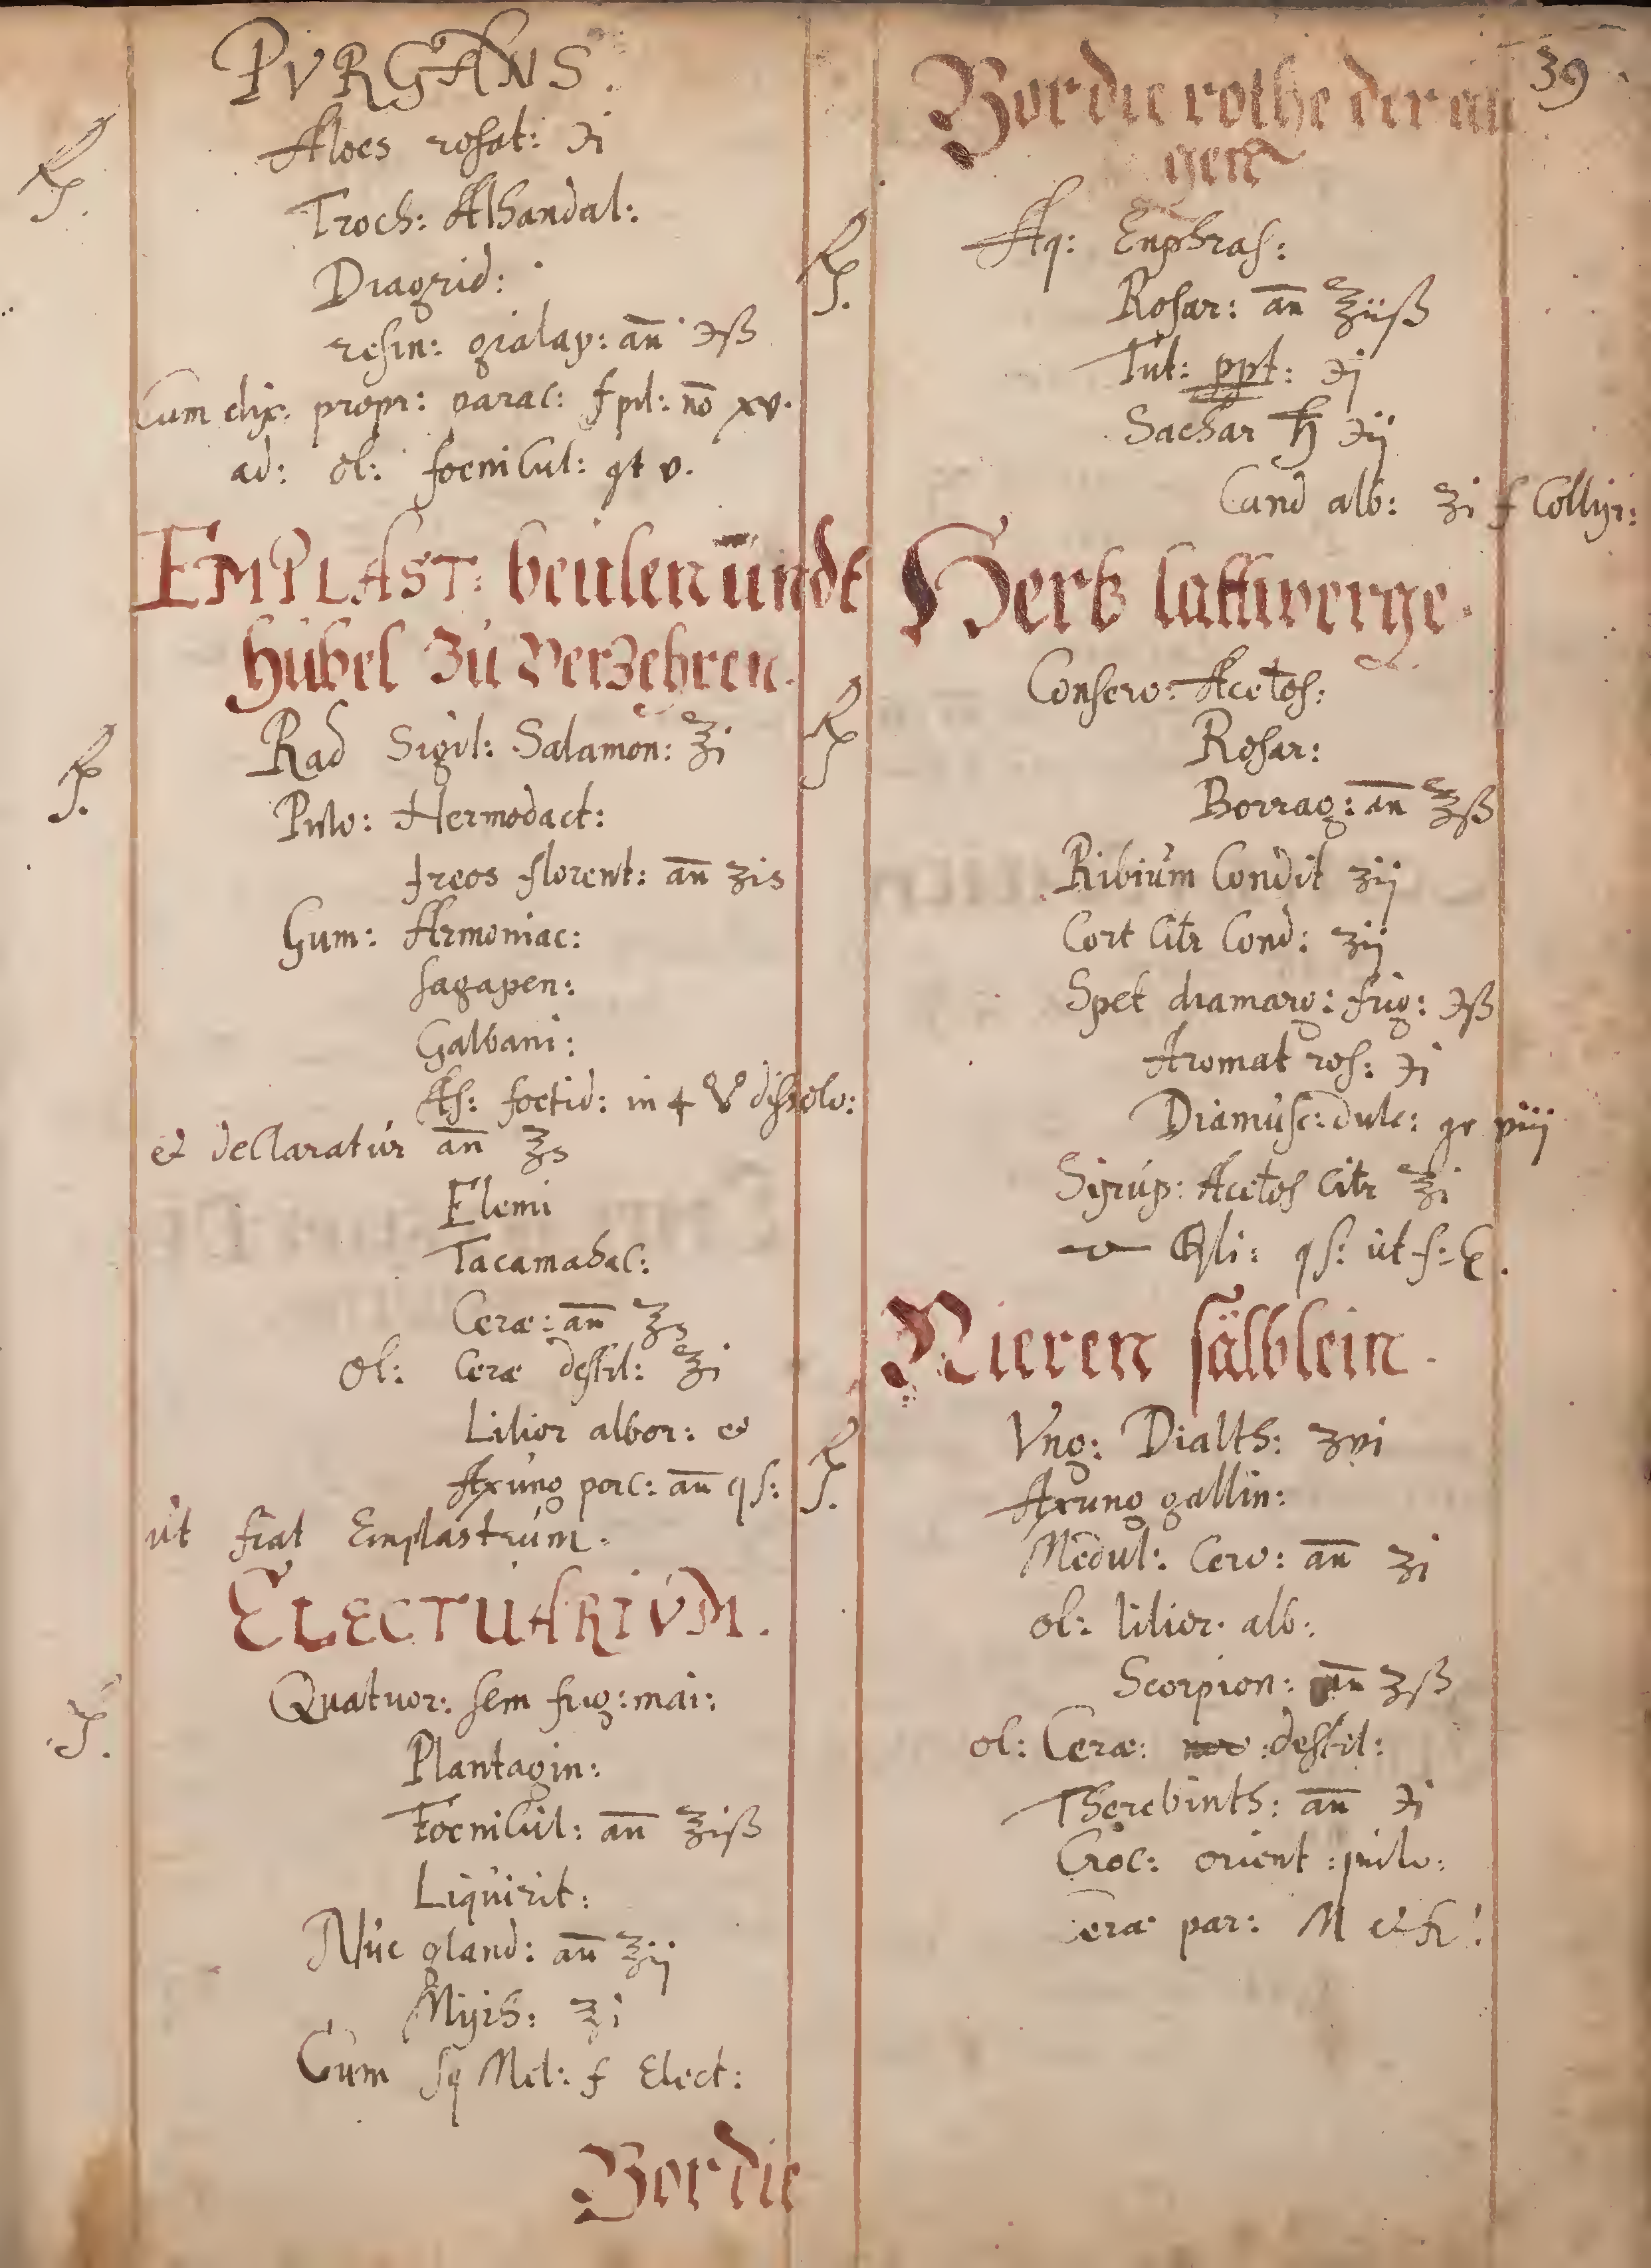 PVRGANS.
℞. Aloes rosat: ℈i
Troch: Alhandal:
Diagrid:
resin: gialap: an̄ ℈ß
Cum elix: propr: parac: f pil: no̅ xv.
ad: ol: foenicul: gt v.
EMPLAST: beulen undt
hübel zu verzehren.
℞. Rad Sigil: Salamon: ℥i
Pulv: Hermodact:
Ireos florent: an̄ ʒis
Gum: Armoniac:
sagapen:
Galbani:
As: foetid: in dissolv:
et dellaratur an̄ ℥s
Elemi
Tacamahac:
Ceræ: an̄ ℥s
ol: Ceræ destil: ℥i
Lilior albor: et
Axung porc: an̄ qs:
ut fiat Emplastrum.
ELECTUARIVM.
℞. Quatuor: sem frig: mai:
Plantagin:
Foenicul: an̄ ℥iß
Liquirit:
Nuc gland: an̄ ℥ij
Myrh: ʒi
Cum sq Mel: f Elect:
Vor die
39
Vor die rothe der au
gen
℞. Aq: Euphras:
Rosar: an̄ ℥iiß
Tut: ppt: ℈j
Sachar ♄ ℈ij
Cand alb: ʒi f Collyr:
Hertz lattwerge.
℞ Conserv: Acetos:
Rosar:
Borrag: an̄ ℥ß
Ribium Condit ʒij
Cort Citr Cond: ʒij
Spet diamarg: frig: ℈ß
Aromat ros: ℈i
Diamusc: dulc: gr viij
Sirup: Acetos Citr ℥i
qs: ut f:
Nieren sälblein.
℞. Vng: Dialth: ʒvi
Axung gallin:
Medul: Cerv: an̄ ʒi
ol: lilior. alb:
Scorpion: an̄ ʒß
ol: Ceræ: destil:
Therebinth: an̄ ℈i
Croc: orient: pulv:
Ceræ par: M et fi: